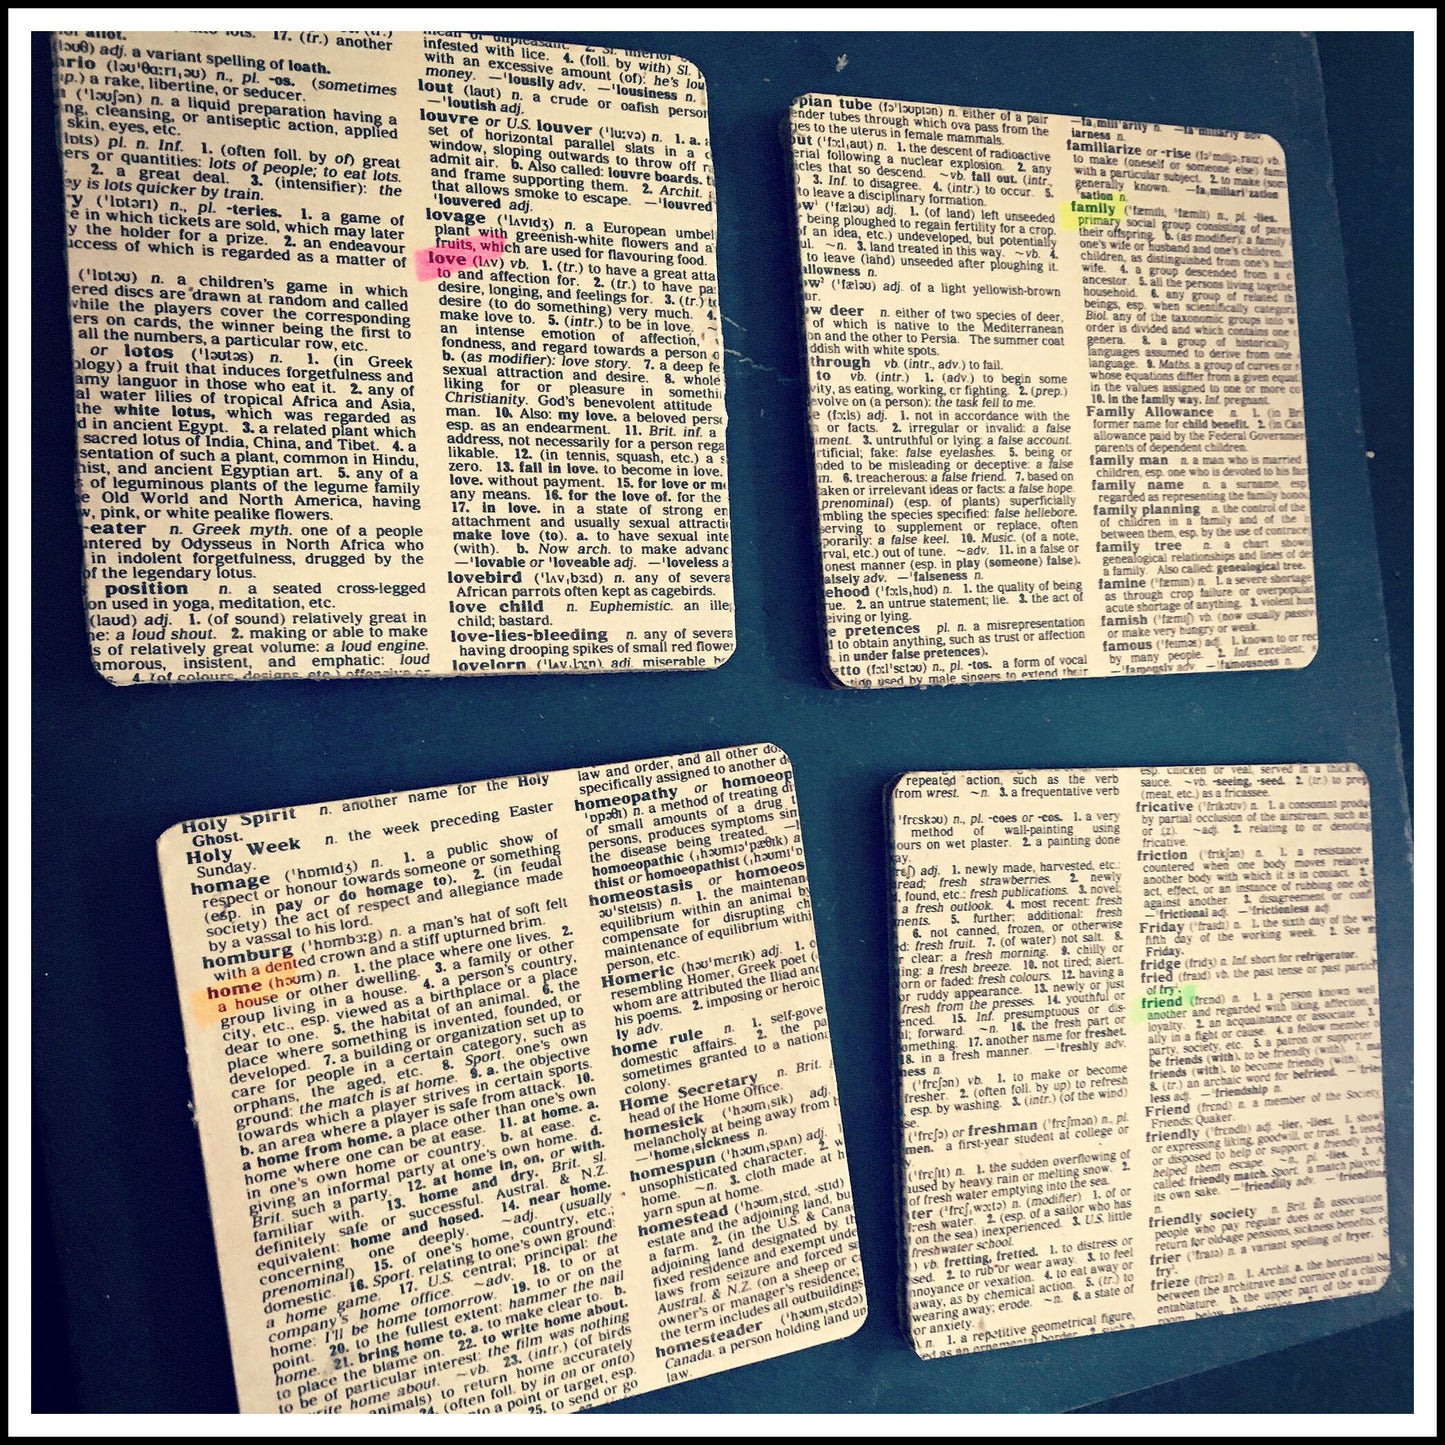 lots. 17. (tr.) another
adj. a variant spelling of loath.
n., pl. -os. (sometimes
a rake, libertine, or seducer.
n. a liquid preparation having a
cleansing, or antiseptic action, applied
skin, eyes, etc.
pl. n. Inf. 1. (often foll. by of) great
or quantities: lots of people; to eat lots.
2. a great deal. 3. (intensifier): the
is lots quicker by train.
n., pl. -teries. 1. a game of
in which tickets are sold, which may later
the holder for a prize. 2. an endeavour
success of which is regarded as a matter of
n. a children's game in which
discs are drawn at random and called
while the players cover the corresponding
on cards, the winner being the first to
all the numbers, a particular row, etc.
or lotos n. 1. (in Greek
a fruit that induces forgetfulness and
languor in those who eat it. 2. any of
water lilies of tropical Africa and Asia,
the white lotus, which was regarded as
in ancient Egypt. 3. a related plant which
sacred lotus of India, China, and Tibet. 4. a
of such a plant, common in Hindu,
and ancient Egyptian art. 5. any of a
of leguminous plants of the legume family
Old World and North America, having
pink, or white pealike flowers.
-eater n. Greek myth. one of a people
by Odysseus in North Africa who
in indolent forgetfulness, drugged by the
of the legendary lotus.
position n. a seated cross-legged
used in yoga, meditation, etc.
(laud) adj. 1. (of sound) relatively great in
a loud shout. 2. making or able to make
of relatively great volume: a loud engine.
insistent, and emphatic: loud
4. (of colours, designs, etc.) offensive
infested with lice. 4. (foll. by with) Sl.
with an excessive amount (of): he's
money. —'lousily adv. —'lousiness n.
lout (laut) n. a crude or oafish
—'loutish adj.
louvre or U.S. louver ('lu:və) n. 1. a.
set of horizontal parallel slats in a
window, sloping outwards to throw off
admit air. b. Also called: louvre boards.
and frame supporting them. 2. Archit.
that allows smoke to escape. —'louvred
'louvered adj.
lovage ('lʌvɪdʒ) n. a European
plant with greenish-white flowers and
fruits, which are used for flavouring food.
love (lʌv) vb. 1. (tr.) to have a great
to and affection for. 2. (tr.) to have
desire, longing, and feelings for. 3. (tr.)
desire (to do something) very much. 4.
make love to. 5. (intr.) to be in love. ~
an intense emotion of affection,
fondness, and regard towards a person
b. (as modifier): love story. 7. a deep
sexual attraction and desire. 8.
liking for or pleasure in
Christianity. God's benevolent attitude
man. 10. Also: my love. a beloved
esp. as an endearment. 11. Brit. inf. a
address, not necessarily for a person
likable. 12. (in tennis, squash, etc.) a
zero. 13. fall in love. to become in love.
love. without payment. 15. for love or
any means. 16. for the love of. for the
17. in love. in a state of strong
attachment and usually sexual
make love (to). a. to have sexual
(with). b. Now arch. to make
—'lovable or 'loveable adj. —'loveless
lovebird ('lʌv,bɜ:d) n. any of
African parrots often kept as cagebirds.
love child n. Euphemistic. an
child; bastard.
love-lies-bleeding n. any of
having drooping spikes of small red
lovelorn adj. miserable
tube n. either of a pair
tubes through which ova pass from the
to the uterus in female mammals.
n. 1. the descent of radioactive
following a nuclear explosion. 2. any
that so descend. ~vb. fall out. (intr.,
3. Inf. to disagree. 4. (intr.) to occur. 5.
to leave a disciplinary formation.
('fæləʊ) adj. 1. (of land) left unseeded
being ploughed to regain fertility for a crop.
an idea, etc.) undeveloped, but potentially
~n. 3. land treated in this way. ~vb. 4.
to leave (land) unseeded after ploughing it.
n.
('fæləʊ) adj. of a light yellowish-brown
deer n. either of two species of deer,
of which is native to the Mediterranean
and the other to Persia. The summer coat
with white spots.
through vb. (intr., adv.) to fail.
to vb. (intr.) 1. (adv.) to begin some
as eating, working, or fighting. 2. (prep.)
on (a person): the task fell to me.
adj. 1. not in accordance with the
or facts. 2. irregular or invalid: a false
3. untruthful or lying: a false account.
fake: false eyelashes. 5. being or
to be misleading or deceptive: a false
6. treacherous: a false friend. 7. based on
or irrelevant ideas or facts: a false hope.
(esp. of plants) superficially
the species specified: false hellebore.
to supplement or replace, often
a false keel. 10. Music. (of a note,
etc.) out of tune. ~adv. 11. in a false or
manner (esp. in play (someone) false).
adv. —'falseness n.
n. 1. the quality of being
2. an untrue statement; lie. 3. the act of
or lying.
pretences pl. n. a misrepresentation
to obtain anything, such as trust or affection
in under false pretences).
n., pl. -tos. a form of vocal
used by male singers to extend their
familiarize or -rise vb.
to make (oneself or someone else)
with a particular subject. 2. to make
generally known.
n.
family n., pl. -lies.
primary social group consisting of
their offspring. b. (as modifier): a family
one's wife or husband and one's children.
children, as distinguished from one's
wife. 4. a group descended from a
ancestor. 5. all the persons living
household. 6. any group of related
beings, esp. when scientifically
Biol. any of the taxonomic groups into
order is divided and which contains one
genera. 8. a group of historically
languages assumed to derive from one
language. 9. Maths. a group of curves or
whose equations differ from a given
in the values assigned to one or more
10. in the family way. Inf. pregnant.
Family Allowance n. 1. (in
former name for child benefit. 2. (in
allowance paid by the Federal
parents of dependent children.
family man n. a man who is married
children, esp. one who is devoted to his
family name n. a surname, esp.
regarded as representing the family
family planning n. the control of the
of children in a family and of the
between them, esp. by the use of
family tree n. a chart
genealogical relationships and lines of
a family. Also called: genealogical tree.
famine ('fæmɪn) n. 1. a severe shortage
as through crop failure or
acute shortage of anything. 3. violent
famish ('fæmɪʃ) vb. (now usually
or make very hungry or weak.
famous ('feɪməs) adj. 1. known to or
by many people. 2. Inf. excellent;
—'famously adv. —'famousness n.
Holy Spirit n. another name for the Holy
Ghost.
Holy Week n. the week preceding Easter
Sunday.
homage ('hɒmɪdʒ) n. 1. a public show of
respect or honour towards someone or something
(esp. in pay or do homage to). 2. (in feudal
society) the act of respect and allegiance made
by a vassal to his lord.
homburg ('hɒmbɜ:g) n. a man's hat of soft felt
with a dented crown and a stiff upturned brim.
home (həʊm) n. 1. the place where one lives. 2.
a house or other dwelling. 3. a family or other
group living in a house. 4. a person's country,
city, etc., esp. viewed as a birthplace or a place
dear to one. 5. the habitat of an animal. 6. the
place where something is invented, founded, or
developed. 7. a building or organization set up to
care for people in a certain category, such as
orphans, the aged, etc. 8. Sport. one's own
ground: the match is at home. 9. a. the objective
towards which a player strives in certain sports.
b. an area where a player is safe from attack. 10.
a home from home. a place other than one's own
home where one can be at ease. 11. at home. a.
in one's own home or country. b. at ease. c.
giving an informal party at one's own home. d.
Brit. such a party. 12. at home in, on, or with.
familiar with. 13. home and dry. Brit. sl.
definitely safe or successful. Austral. & N.Z.
equivalent: home and hosed. 14. near home.
concerning one deeply. ~adj. (usually
prenominal) 15. of one's home, country, etc.;
domestic. 16. Sport. relating to one's own ground:
a home game. 17. U.S. central; principal: the
company's home office. ~adv. 18. to or at
home: I'll be home tomorrow. 19. to or on the
point. 20. to the fullest extent: hammer the nail
home. 21. bring home to. a. to make clear to. b.
to place the blame on. 22. to write home about.
to be of particular interest: the film was nothing
write home about. ~vb. 23. (intr.) (of birds
animals) to return home accurately
24. (often foll. by in on or onto)
to a point or target, esp.
25. to send or go
law and order, and all other
specifically assigned to another
homeopathy or
n. a method of treating
of small amounts of a drug
persons, produces symptoms
the disease being treated.
homeopathic
thist or homoeopathist
homeostasis or
n. 1. the
equilibrium within an animal
compensate for disrupting
maintenance of equilibrium
person, etc.
Homeric (həʊ'mɛrɪk) adj. 1.
resembling Homer, Greek poet
whom are attributed the Iliad
his poems. 2. imposing or heroic
ly adv.
home rule n. 1.
domestic affairs. 2. the
sometimes granted to a
colony.
Home Secretary n. Brit.
head of the Home Office.
homesick ('həʊm,sɪk) adj.
melancholy at being away from
—'home,sickness n.
homespun ('həʊm,spʌn) adj.
unsophisticated character. 2.
home. ~n. 3. cloth made at
yarn spun at home.
homestead ('həʊm,stɛd, -stɪd)
estate and the adjoining land,
a farm. 2. (in the U.S. &
adjoining land designated by
fixed residence and exempt
laws from seizure and forced
Austral. & N.Z. (on a sheep or
owner's or manager's residence;
the term includes all outbuildings
homesteader ('həʊm,stɛdə)
Canada. a person holding land
law.
repeated action, such as the verb
from wrest. ~n. 3. a frequentative verb
('frɛskəʊ) n., pl. -coes or -cos. 1. a very
method of wall-painting using
on wet plaster. 2. a painting done
adj. 1. newly made, harvested, etc.:
fresh strawberries. 2. newly
found, etc.: fresh publications. 3. novel;
a fresh outlook. 4. most recent: fresh
5. further; additional: fresh
6. not canned, frozen, or otherwise
fresh fruit. 7. (of water) not salt. 8.
clear: a fresh morning. 9. chilly or
a fresh breeze. 10. not tired; alert.
or faded: fresh colours. 12. having a
or ruddy appearance. 13. newly or just
fresh from the presses. 14. youthful or
15. Inf. presumptuous or
forward. ~n. 16. the fresh part or
something. 17. another name for freshet.
18. in a fresh manner. —'freshly adv.
n.
('frɛʃən) vb. 1. to make or become
fresher. 2. (often foll. by up) to refresh
esp. by washing. 3. (intr.) (of the wind)
('frɛʃə) or freshman ('frɛʃmən) n., pl.
a first-year student at college or
('frɛʃɪt) n. 1. the sudden overflowing of
caused by heavy rain or melting snow. 2.
of fresh water emptying into the sea.
n. (modifier) 1. of or
fresh water. 2. (esp. of a sailor who has
on the sea) inexperienced. 3. U.S. little
freshwater school.
vb. fretting, fretted. 1. to distress or
2. to rub or wear away. 3. to feel
annoyance or vexation. 4. to eat away or
away, as by chemical action. 5. (tr.) to
wearing; erode. ~n. 6. a state of
or anxiety.
n. 1. a repetitive geometrical figure,
as an ornamental border. 2. such a
esp. chicken or veal, served in a thick
sauce. ~vb. -seeing, -seed. 2. (tr.) to
(meat, etc.) as a fricassee.
fricative ('frɪkətɪv) n. 1. a consonant
by partial occlusion of the airstream, such as
or (z). ~adj. 2. relating to or denoting
fricative.
friction ('frɪkʃən) n. 1. a resistance
countered when one body moves relative
another body with which it is in contact. 2.
act, effect, or an instance of rubbing one
against another. 3. disagreement or
—'frictional adj. —'frictionless adj.
Friday ('fraɪdɪ) n. 1. the sixth day of the
fifth day of the working week. 2. See
Friday.
fridge (frɪdʒ) n. Inf. short for refrigerator.
fried (fraɪd) vb. the past tense or past
of fry.
friend (frɛnd) n. 1. a person known well
another and regarded with liking, affection,
loyalty. 2. an acquaintance or associate. 3.
ally in a fight or cause. 4. a fellow member
party, society, etc. 5. a patron or supporter.
be friends (with). to be friendly (with).
friends (with). to become friendly (with). ~
8. (tr.) an archaic word for befriend.
less adj. —'friendship n.
Friend (frɛnd) n. a member of the Society
Friends; Quaker.
friendly ('frɛndlɪ) adj. -lier, -liest. 1.
or expressing liking, goodwill, or trust. 2.
or disposed to help or support: a friendly
helped them escape. ~n., pl. -lies. 3.
called: friendly match. Sport. a match played
its own sake. —'friendlily adv.
n.
friendly society n. Brit. an association
people who pay regular dues or other sums
return for old-age pensions, sickness benefits,
frier ('fraɪə) n. a variant spelling of fryer.
fry.
frieze (fri:z) n. 1. Archit. a. the horizontal
between the architrave and cornice of a
entablature. b. the upper part of the wall
room, below the cornice,